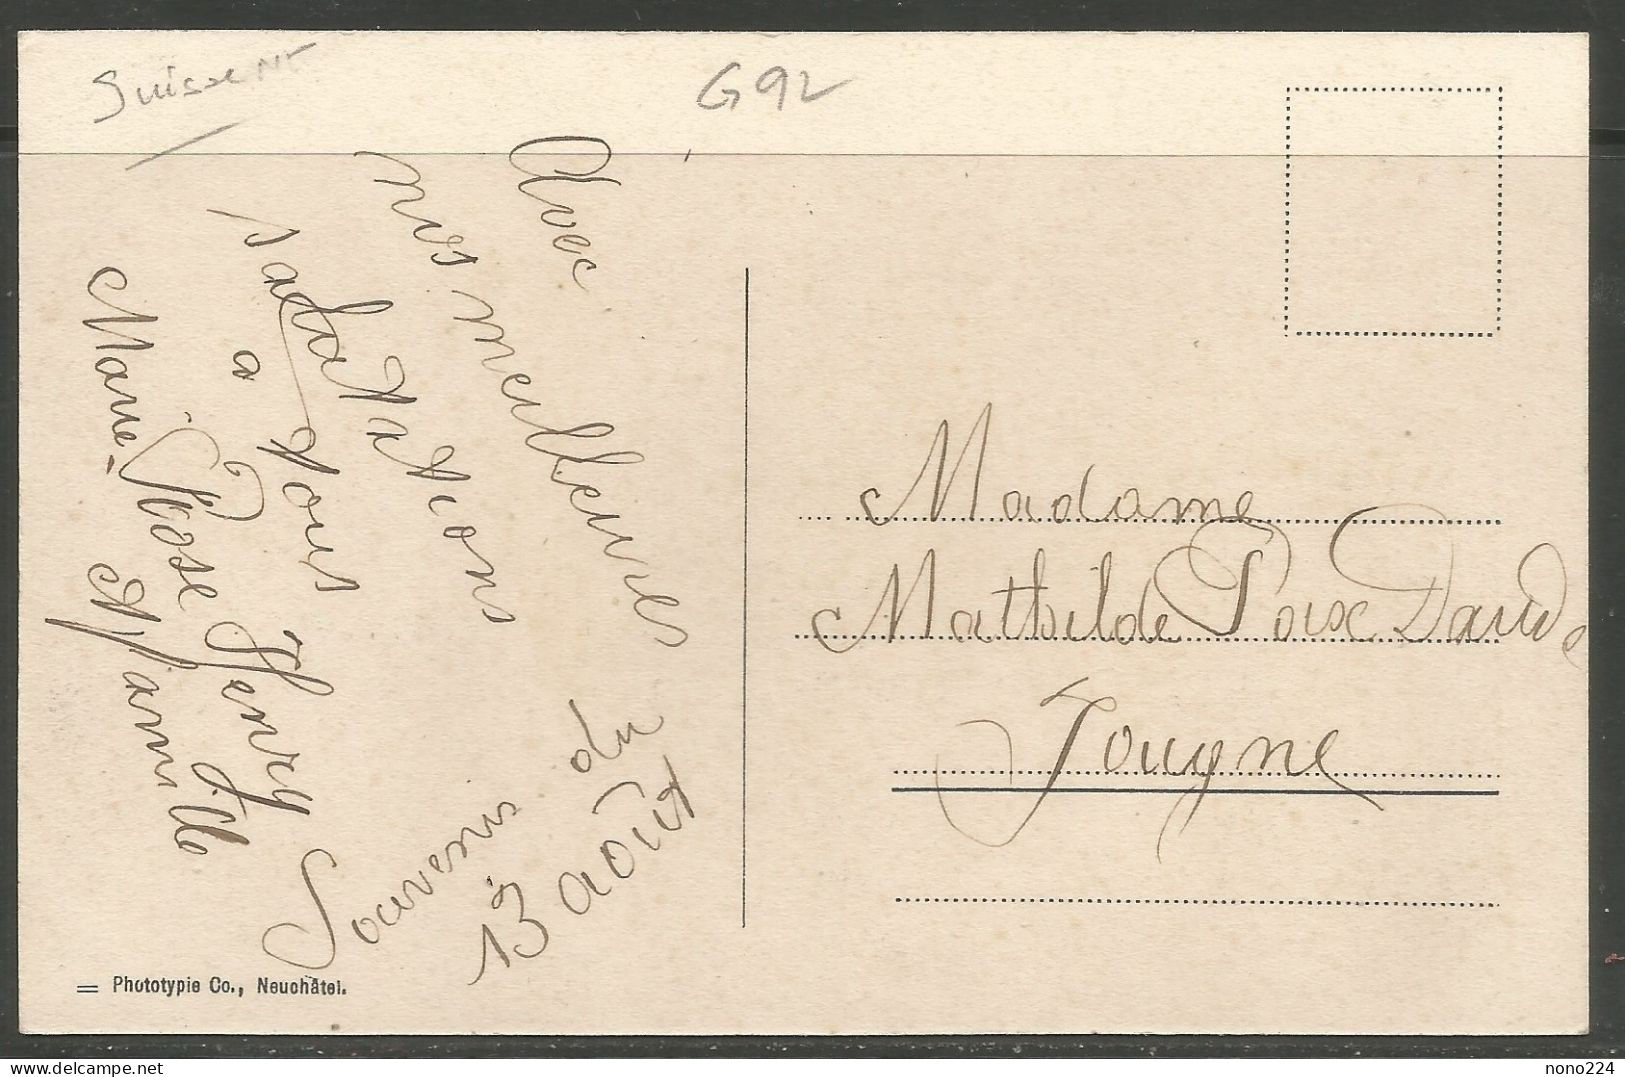 Suisse NT
G92
Avec
nos meilleures
salutations
a vous
Marie-Rose Henry
et famille
Souvenir du
13 août
Madame
Mathilde Poix David
Jougne
Phototypie Co., Neuchâtel.
nono224